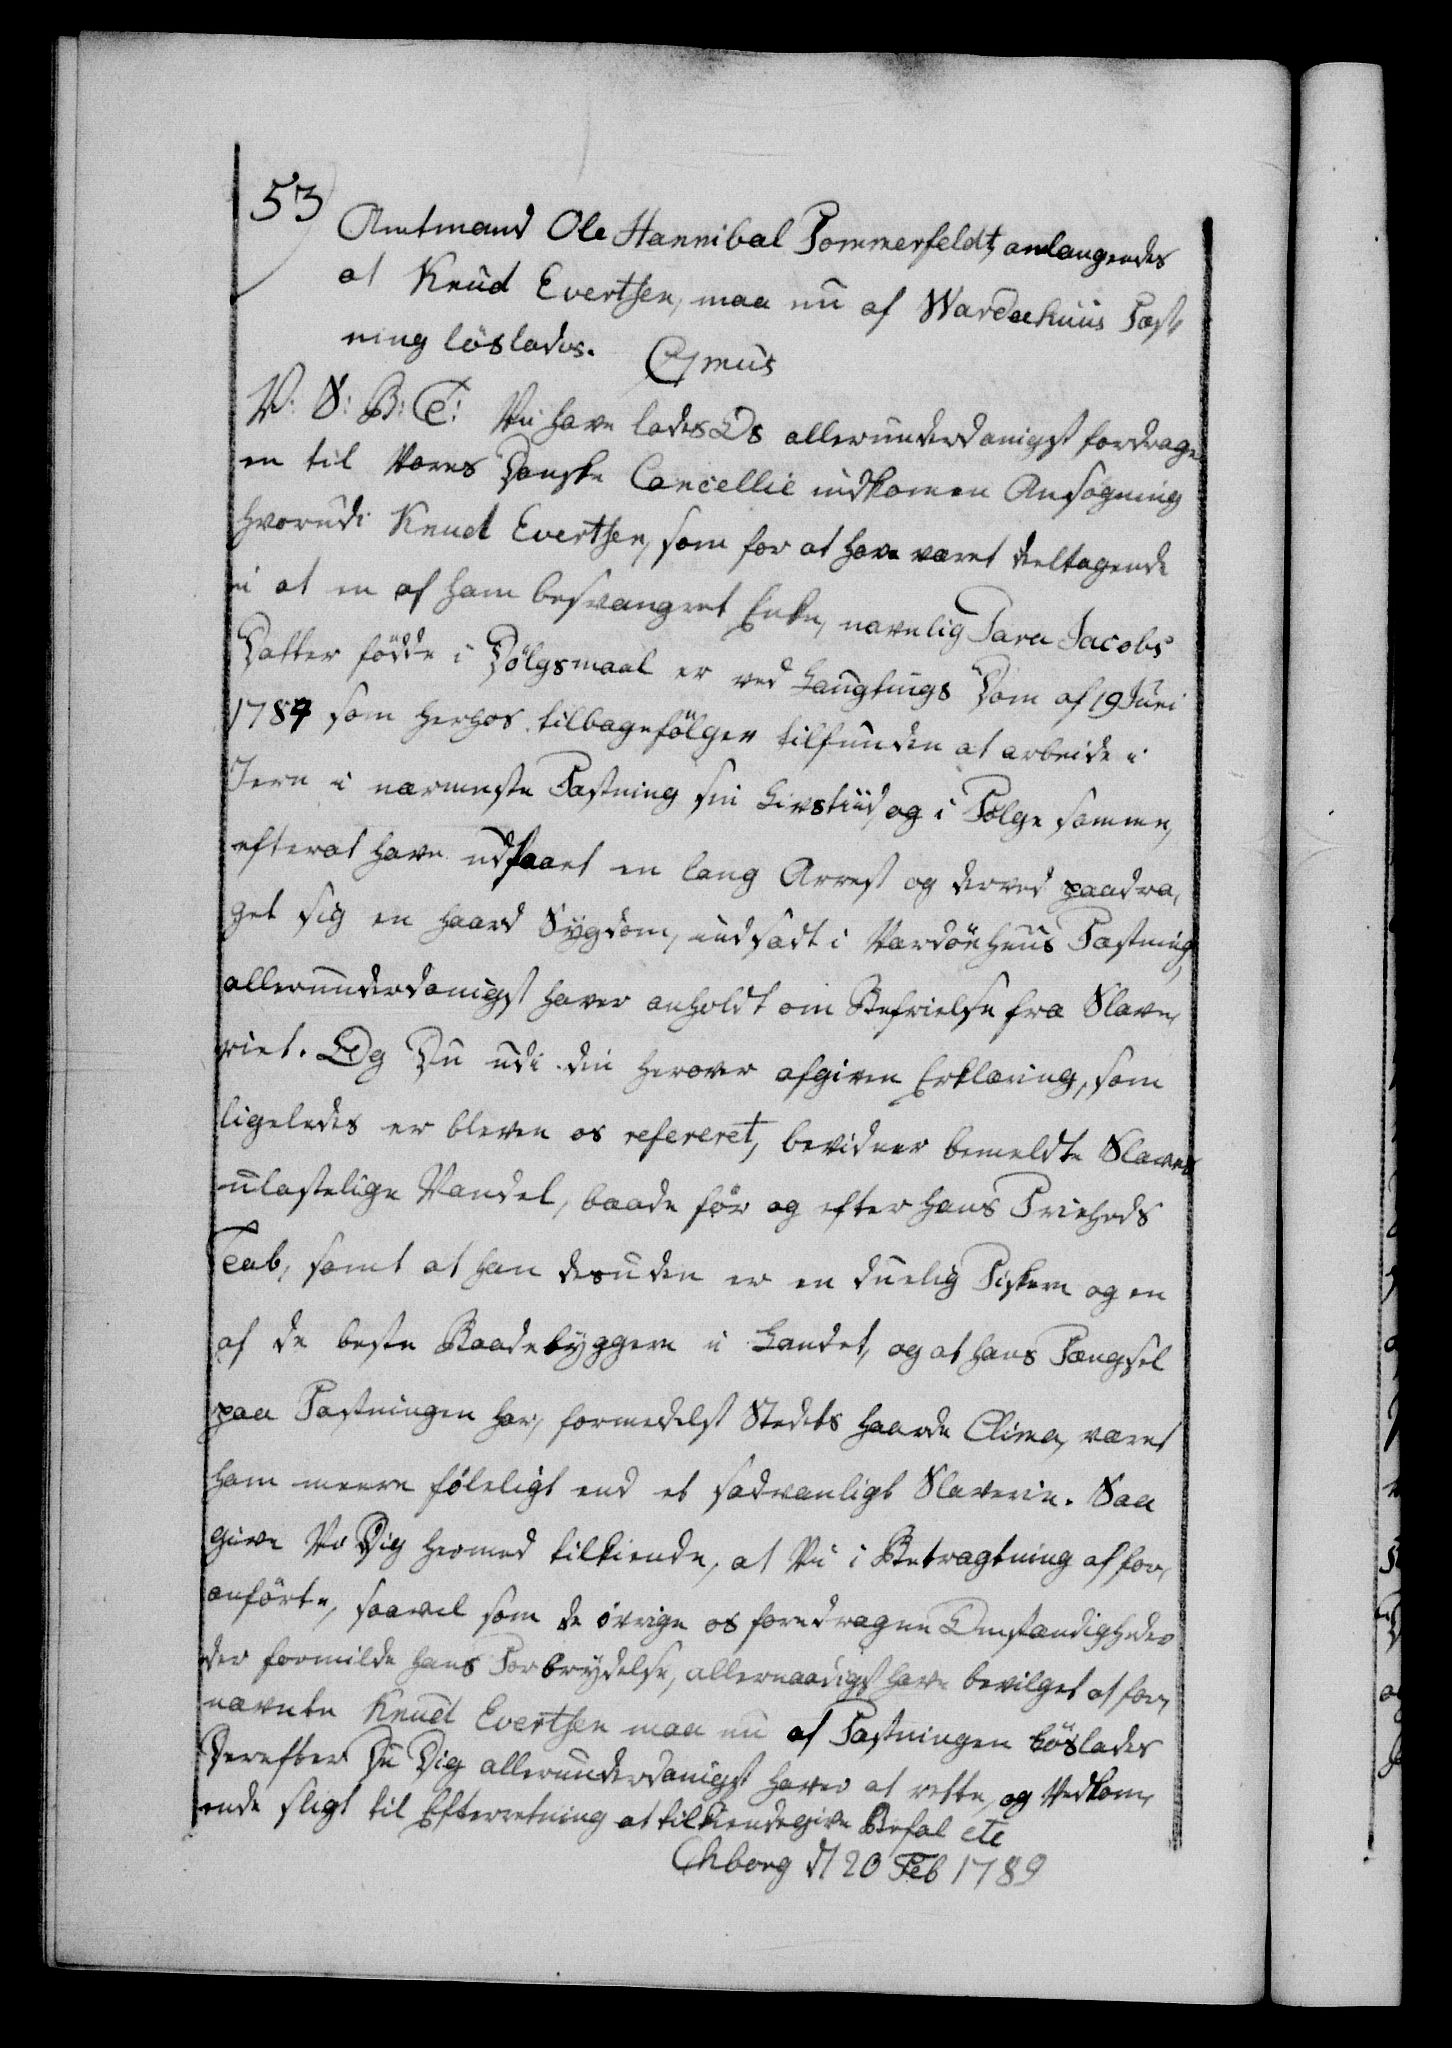 53)
Amtmand Ole Hannibal Sommerfeldt, anlangendes
at Knud Evertsen, maa nu af Wardoehuus Fæst-
ning løslades. C7mus
W: S: B: T: Vi have lades Os allerunderdanigst fordrage
en til Vores Danske Cancellie indkomen Ansøgning
hvorudi Knud Evertsen, som for at have været deeltagende
i at en af ham besvangret Enke, navnlig Sara Jacobs
Datter fødde i Dølgsmaal er ved Laugtings Dom af 19 Juni
1787 som herhos tilbagefølger tilfunden at arbeide i
Jern i nærmeste Fæstning sin Livstiid, og i Følge samme,
efterat have udstaaet en lang Arrest og derved paadra-
get sig en haard Sygdom, indsadt i Vardøehuus Fæstning,
allerunderdanigst haver anholdt om Befrielse fra Slave-
riet. Og Du udi din herover afgivne Erklæring, som
ligeledes er bleven os refereret, bevidner bemeldte Slaves
ulastelige Vandel, baade før og efter hans Friheds
Tab, samt at han desuden er en duelig Fisker og en
af de beste Baadebyggere i Landet, og at hans Fængsel
paa Fæstningen har, formedelst Stedets haarde Clima, været
ham meere føleligt end et sædvanligt Slaverie. Saa
give Vi Dig hermed tilkiende, at Vi i Betragtning af for-
anførte, saavel som de øvrige os foredragne Omstændigheder
der formilde hans Forbrydelse, allernaadigst have bevilget at for-
nævnte Knud Evertsen maa nu af Fæstningen løslades
Derefter Du Dig allerunderdanigst haver at rette, og Vedkom-
ende sligt til Efterretning at tilkiendegive Befal etc
Chborg d 20 Feb 1789